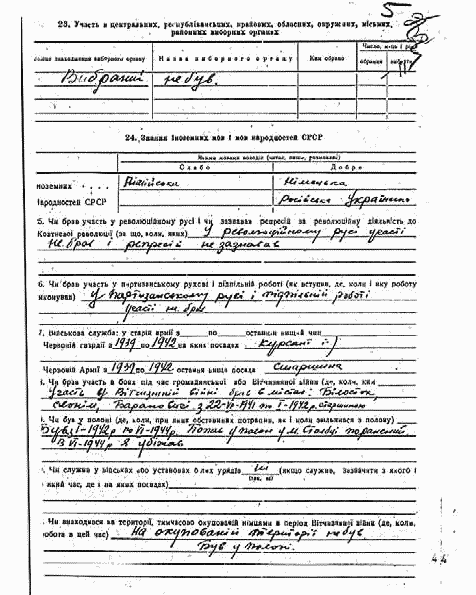 5
23. Участь в центральних, республіканських, крайових, обласних, окружних, міських, районних виборних органах
знаходження виборного органу | Назва виборного органу | Ким обраний | Число, м-ць і рік
обрання | вибуття
Вибраний не був.
24. Знання іноземних мов і мов народностей СРСР
Якими мовами володіє (читає, пише, розмовляє)
Слабо | Добре
іноземних . . . . Німецька
Народностей СРСР Російська Українська
5. Чи брав участь у революційному русі і чи зазнавав репресій за революційну діяльність до
Жовтневої революції (за що, коли, яких) У революційному русі участі
не брав і репресій не зазнавав
6. Чи брав участь у партизанському рухові і підпільній роботі (як вступив, де, коли і яку роботу
виконував) У партизанському русі і підпільній роботі
участі не брав
7. Військова служба: у старій армії з ____ по ____ останній вищий чин
Червоній гвардії з 1939 по 1942 на яких посадах курсант і
Червоній Армії з 1939 по 1942 остання вища посада старшина
Чи брав участь в боях під час громадянської або Вітчизняної війни (де, коли, ким
Участь у Вітчизняній війні брав в містах: Білосток
Слонім, Барановичі з 22-VI-1941 по I-1942 р. старшиною
Чи був у полоні (де, коли, при яких обставинах потрапив, як і коли звільнився з полону)
Був з I-1942 р. по VI-1944 р. Попав у полон у м. Стовбці поранений
В VI-1944 р. я убіжав
Чи служив у військах або установах білих урядів ні (якщо служив, зазначити з якого і
який час, де і на яких посадах)
Чи знаходився на території, тимчасово окупованій німцями в період Вітчизняної війни (де, коли,
робота в цей час) На окупованій території не був.
Був у полоні.
44